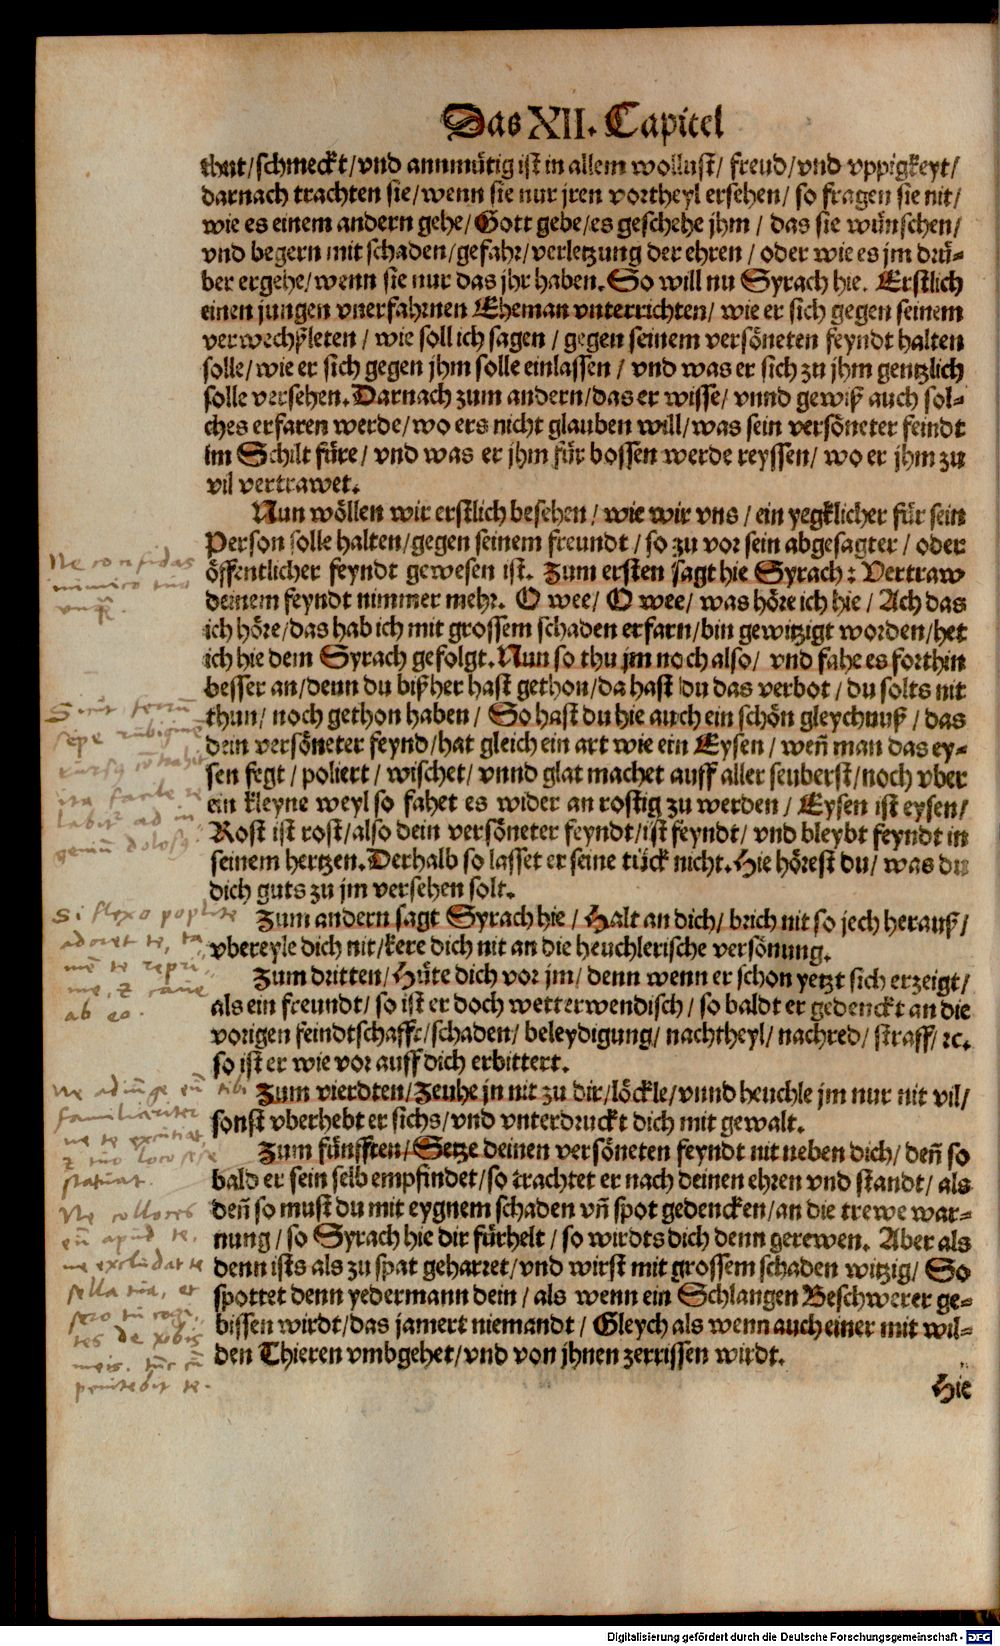 Das XII. Capitel
thut/schmeckt/vnd annmütig ist in allem wollust/ freud/vnd vppigkeyt/
darnach trachten sie/wenn sie nur jren vortheyl ersehen/ so fragen sie nit/
wie es einem andern gehe/Gott gebe/es geschehe jhm / das sie wünschen/
vnd begern mit schaden/gefahr/verletzung der ehren / oder wie es jm drü-
ber ergehe/wenn sie nur das jhr haben. So will nu Syrach hie. Erstlich
einen jungen vnerfahrnen Eheman vnterrichten/ wie er sich gegen seinem
verwechßleten / wie soll ich sagen / gegen seinem versöneten feyndt halten
solle/wie er sich gegen jhm solle einlassen / vnd was er sich zu jhm gentzlich
solle versehen. Darnach zum andern/das er wisse/ vnnd gewiß auch sol-
ches erfaren werde/wo ers nicht glauben will/was sein versöneter feindt
im Schilt füre/ vnd was er jhm für bossen werde reyssen/ wo er jhm zu
vil vertrawet.
Nun wöllen wir erstlich besehen/ wie wir vns / ein yegklicher für sein
Person solle halten/gegen seinem freundt / so zu vor sein abgesagter / oder
öffentlicher feyndt gewesen ist. Zum ersten sagt hie Syrach: Vertraw
deinem feyndt nimmer mehr. O wee/ O wee/ was höre ich hie / Ach das
ich höre/das hab ich mit grossem schaden erfarn/bin gewitzigt worden/het
ich hie dem Syrach gefolgt. Nun so thu jm noch also/ vnd fahe es forthin
besser an/denn du bißher hast gethon/da hast du das verbot / du solts nit
thun/ noch gethon haben / So hast du hie auch ein schön gleychnuß / das
dein versöneter feynd/hat gleich ein art wie ein Eysen/ weñ man das ey-
sen fegt / poliert / wischet/ vnnd glat machet auff aller seuberst/noch vber
ein kleyne weyl so fahet es wider an rostig zu werden / Eysen ist eysen/
Rost ist rost/also dein versöneter feyndt/ist feyndt/ vnd bleybt feyndt in
seinem hertzen. Derhalb so lasset er seine tück nicht. Hie hörest du/ was du
dich guts zu jm versehen solt.
Zum andern sagt Syrach hie / Halt an dich/ brich nit so jech herauß/
vbereyle dich nit/kere dich nit an die heuchlerische versönung.
Zum dritten/Hüte dich vor jm/ denn wenn er schon yetzt sich erzeigt/
als ein freundt/ so ist er doch wetterwendisch/ so baldt er gedenckt an die
vorigen feindtschafft/schaden/ beleydigung/ nachtheyl/ nachred/ straff/ ꝛc.
so ist er wie vor auff dich erbittert.
Zum vierdten/Zeuhe jn nit zu dir/löckle/vnnd heuchle jm nur nit vil/
sonst vberhebt er sichs/vnd vnterdruckt dich mit gewalt.
Zum fünfften/Setze deinen versöneten feyndt nit neben dich/ deñ so
bald er sein selb empfindet/so trachtet er nach deinen ehren vnd standt/ als
deñ so must du mit eygnem schaden vñ spot gedencken/an die trewe war-
nung/ so Syrach hie dir fürhelt / so wirdts dich denn gerewen. Aber als
denn ists als zu spat geharret/vnd wirst mit grossem schaden witzig/ So
spottet denn yedermann dein/ als wenn ein Schlangen Beschwerer ge-
bissen wirdt/das jamert niemandt / Gleych als wenn auch einer mit wil-
den Thieren vmbgehet/vnd von jhnen zerrissen wirdt.
Hie
Ne confidas
inimico tuo
Sicut ferrũ
sepe rubiginẽ
ita facile te
labit ad in
geniũ dolosũ
Si flexo poplite
adoret te, ta
mẽ te repri
me, & caue
ab eo.
Ne adiũge eũ tibi
familiariter
ne te excutiat,
& tuo loco
statuat.
Ne colloces
eũ apud te,
ne excludat te
sella tua, et
sero tu cogi
tes de
meis. tũc eũ
penitebit te.
Digitalisierung gefördert durch die Deutsche Forschungsgemeinschaft - DFG